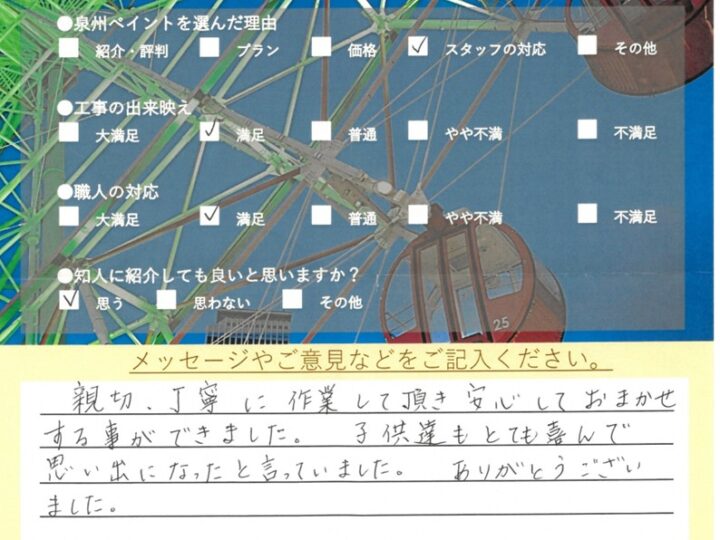 ●泉州ペイントを選んだ理由
紹介・評判 プラン 価格 スタッフの対応 その他
●工事の出来映え
大満足 満足 普通 やや不満 不満足
●職人の対応
大満足 満足 普通 やや不満 不満足
●知人に紹介しても良いと思いますか？
思う 思わない その他
25
メッセージやご意見などをご記入ください。
親切、丁寧に作業して頂き安心しておまかせ
する事ができました。 子供達もとても喜んで
思い出になったと言っていました。 ありがとうござい
ました。